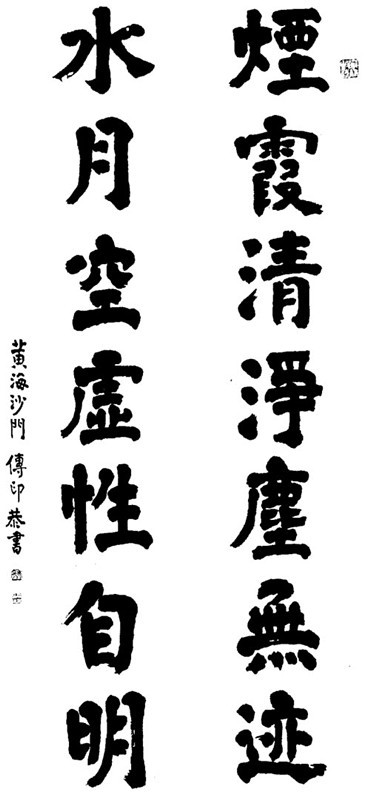 煙霞清淨塵無迹
水月空虛性自明
黃海沙門傳印恭書